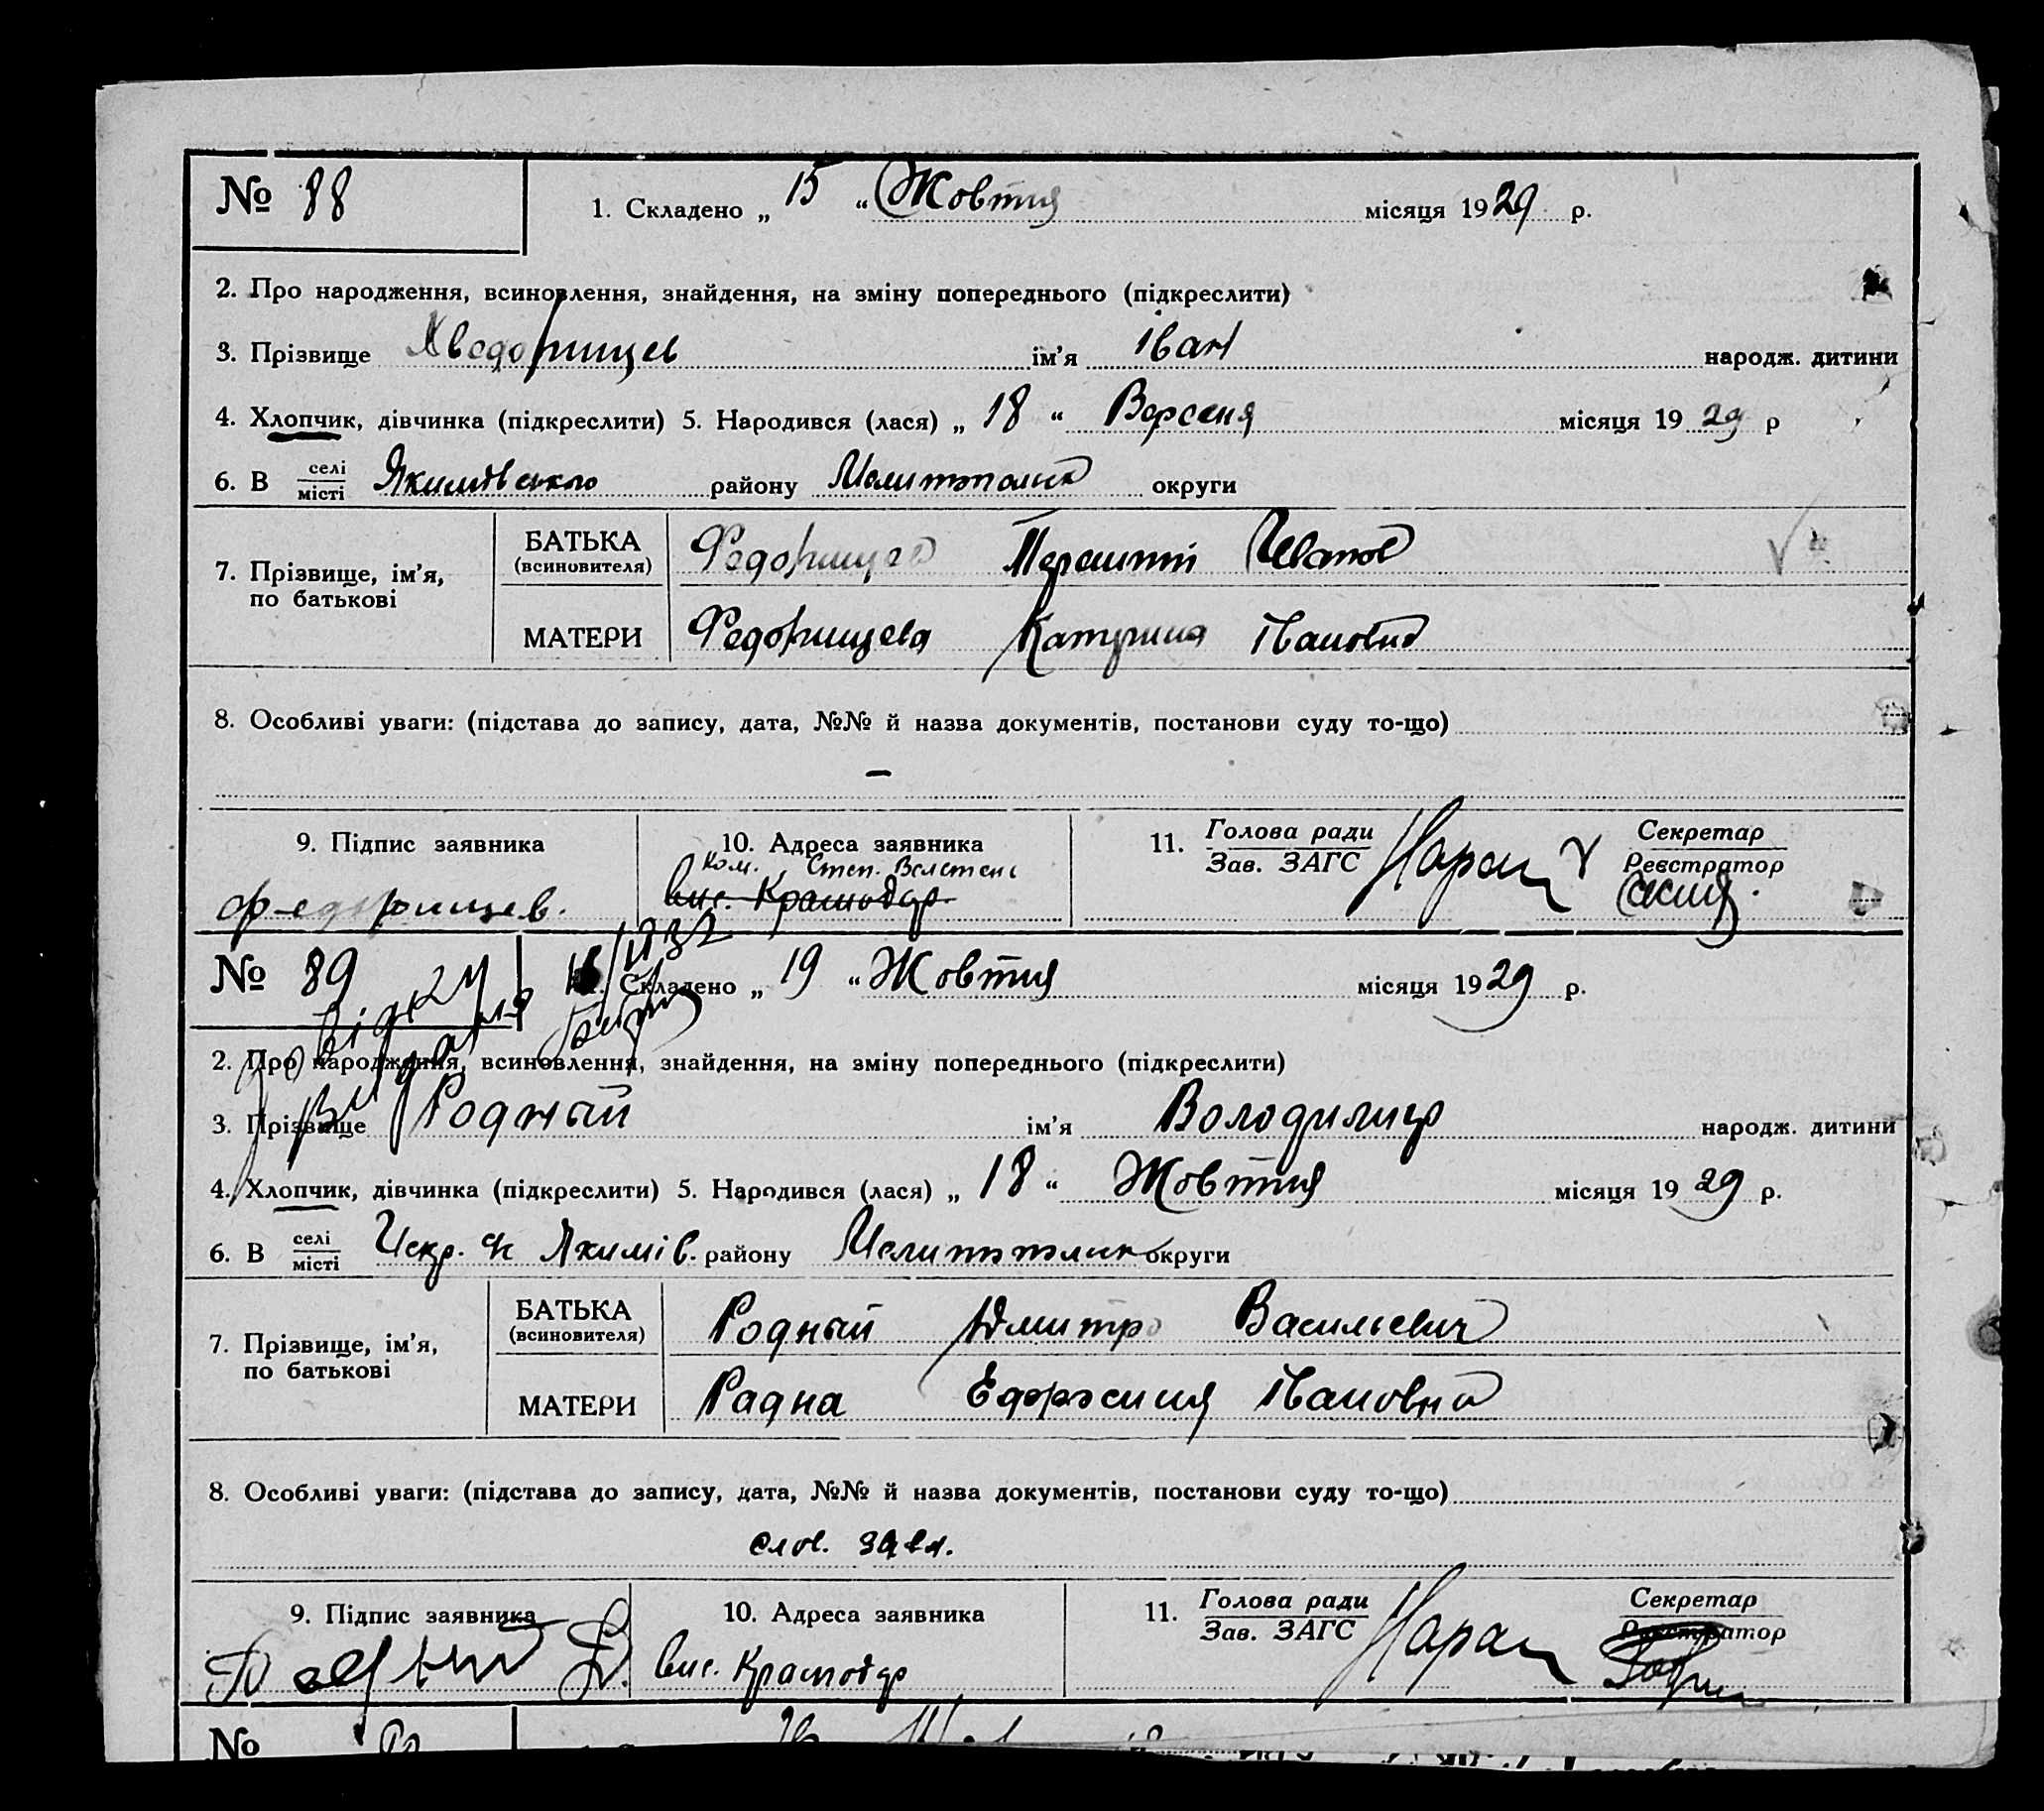 № 88
1. Складено „ 15 “ Жовтня місяця 1929 р.
2. Про народження, всиновлення, знайдення, на зміну попереднього (підкреслити)
3. Прізвище Хведорищев ім’я Іван народж. дитини
4. Хлопчик, дівчинка (підкреслити) 5. Народився (лася) „ 18 “ Версеня місяця 19 29 р
6. В селі місті Якимівського району Мелитополськ округи
7. Прізвище, ім’я, по батькові
БАТЬКА (всиновителя) Федорищев
МАТЕРИ Федорищева Катерина Івановна
8. Особливі уваги: (підстава до запису, дата, №№ й назва документів, постанови суду то-що)
–
9. Підпис заявника
Федорищев.
10. Адреса заявника
ком. Степ.
вис. Краснодар.
11. Голова ради Зав. ЗАГС
Секретар Реєстратор
№ 89
1. Складено „ 19 “ Жовтня місяця 1929 р.
2. Про народження, всиновлення, знайдення, на зміну попереднього (підкреслити)
3. Прізвище Родный ім’я Володимир народж. дитини
4. Хлопчик, дівчинка (підкреслити) 5. Народився (лася) „ 18 “ Жовтня місяця 19 29 р.
6. В селі місті Якимів. району Мелитополськ округи
7. Прізвище, ім’я, по батькові
БАТЬКА (всиновителя) Родный Дмитро Васильевич
МАТЕРИ Радна Ефросиния Івановна
8. Особливі уваги: (підстава до запису, дата, №№ й назва документів, постанови суду то-що)
слов. заяв.
9. Підпис заявника
10. Адреса заявника
вис. Краснодар
11. Голова ради Зав. ЗАГС
Секретар Реєстратор
№